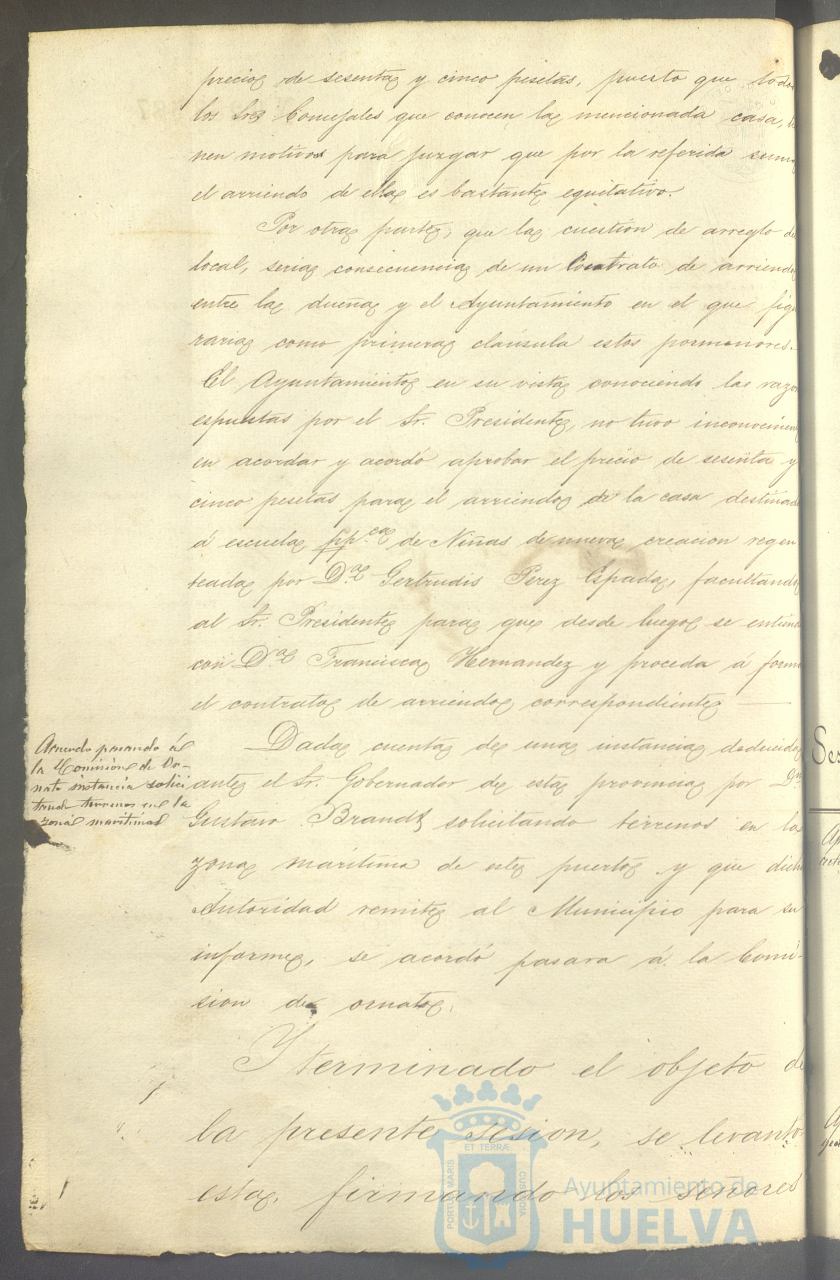 precio de sesenta y cinco pesetas, puesto que todos
los Sres Concejales que conocen la mencionada casa, tie
nen motivos para juzgar que por la referida suma
el arriendo de ella es bastante equitativo.
Por otra parte, que la cuestión de arreglo de
local, seria consecuencia de un Contrato de arriendo
entre la dueña y el Ayuntamiento en el que figu
raria como primera claúsula estos pormenores.
El Ayuntamiento en su vista conociendo las razo
espuestas por el Sr. Presidente, no tuvo inconveniente
en acordar y acordó aprobar el precio de sesenta y
cinco pesetas para el arriendo de la casa destinada
á escuela pp.ca de Niñas de nueva creacion regen
teada por D.a Gertrudis Perez Espada, facultando
al Sr. Presidente para que desde luego se entienda
con D.a Francisca Hernandez y proceda á formar
el contrato de arriendo correspondiente
Acuerdo pasando á
la Comision de Or-
nato instancia solici
tando terrenos en la
zona maritima
Dada cuenta de una instancia deducida
ante el Sr. Gobernador de esta provincia por Dn
Gustavo Brandt solicitando terrenos en la
zona marítima de este puerto y que dicha
Autoridad remite al Municipio para su
informe, se acordó pasara á la Comi-
sion de ornato.
Y terminado el objeto de
la presente sesion, se levantó
esta, firmando los señores
PORTUS MARIS
ET TERRÆ
CUSTODIA
Ayuntamiento de
HUELVA